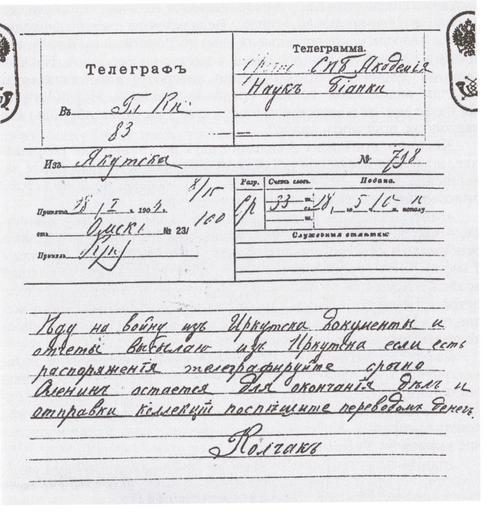 Телеграфъ
Въ Гл Кн.
83
Телеграмма.
СПБ Академія
Наукъ Біанки
Изъ Якутска № 798
8/15
Принята 18 I 1904 г.
отъ Омскъ № 23/ 160
Принялъ
Разр. Счетъ словъ. Подана.
Ср 33 18, 5 10 п. полу
Служебныя отмѣтки:
Иду на войну изъ Иркутска документы и
отчеты высылаю изъ Иркутска если есть
распоряженія телеграфируйте срочно
Оленинъ остается для окончанія дѣлъ и
отправки коллекцій поспѣшите переводомъ денегъ.
Колчакъ